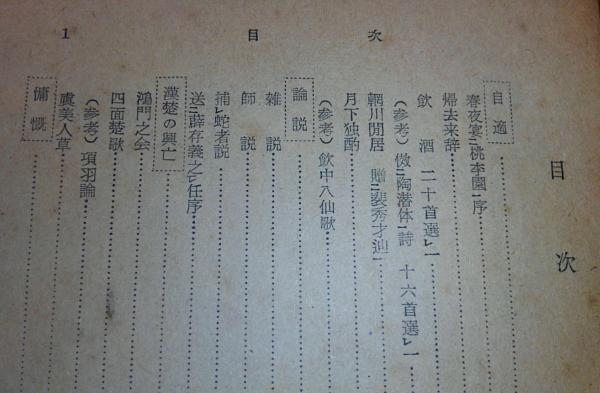 目次
1
目次
自適
春夜宴二桃李園一序
帰去来辞
飲酒 二十首選レ一
(参考) 倣二陶潜体一詩 十六首選レ一
輞川閒居 贈二裴秀才迪一
月下独酌
(参考) 飲中八仙歌
論説
雑説
師説
捕レ蛇者説
送二薛存義之一レ任序
漢楚の興亡
鴻門之会
四面楚歌
(参考) 項羽論
虞美人草
慷慨